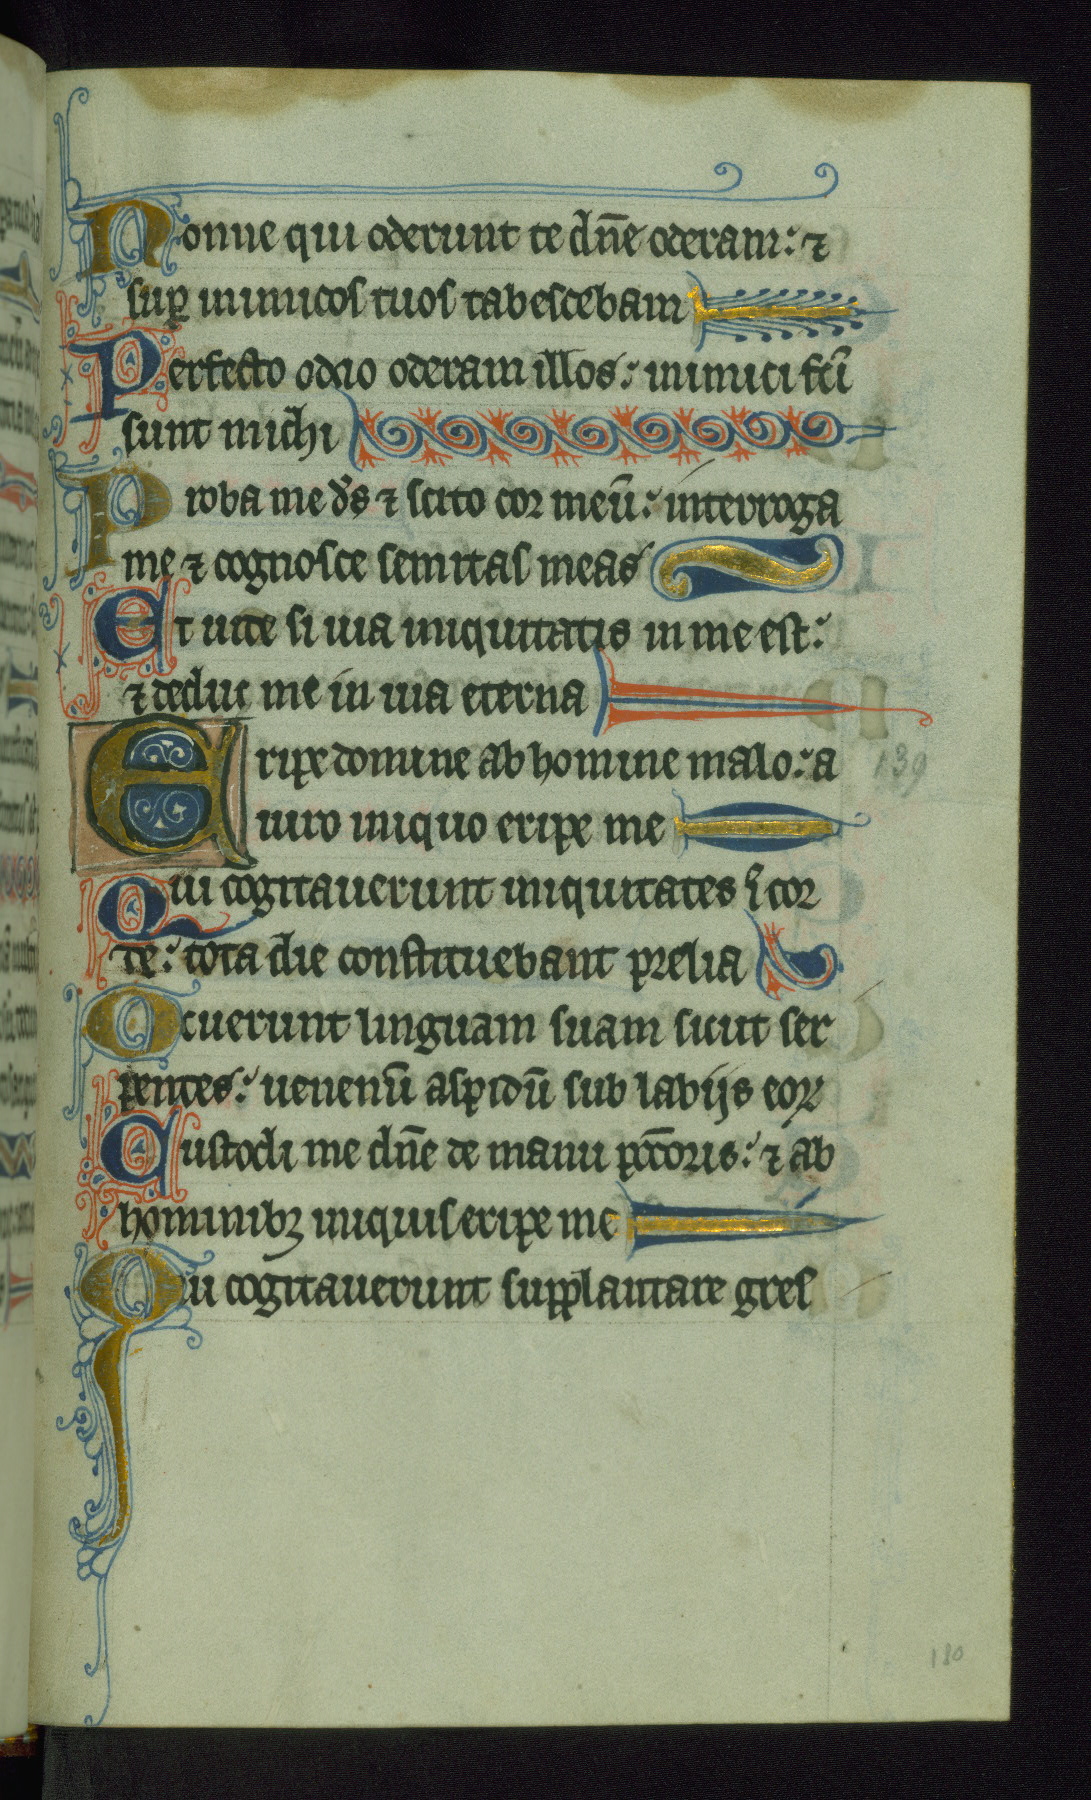 Nonne qui oderunt te dn̄e oderam: ⁊
sup̲ inimicos tuos tabescebam
Perfecto odio oderam illos: inimici fc̄i
sunt michi
Proba me ds̄ ⁊ scito cor meū: interroga
me ⁊ cognosce semitas meas
Et uide si uia iniquitatis in me est:
⁊ deduc me in uia eterna
Eripe domine ab homine malo: a
139
uiro iniquo eripe me
Qui cogitauerunt iniquitates ī cor
de: tota die constituebant prelia
Acuerunt linguam suam sicut ser
pentes: uenenū aspidū sub labijs eoꝝ
Custodi me dn̄e de manu pc̄coris: ⁊ ab
hominibꝫ iniquis eripe me
Qui cogitauerunt supplantare gres
180